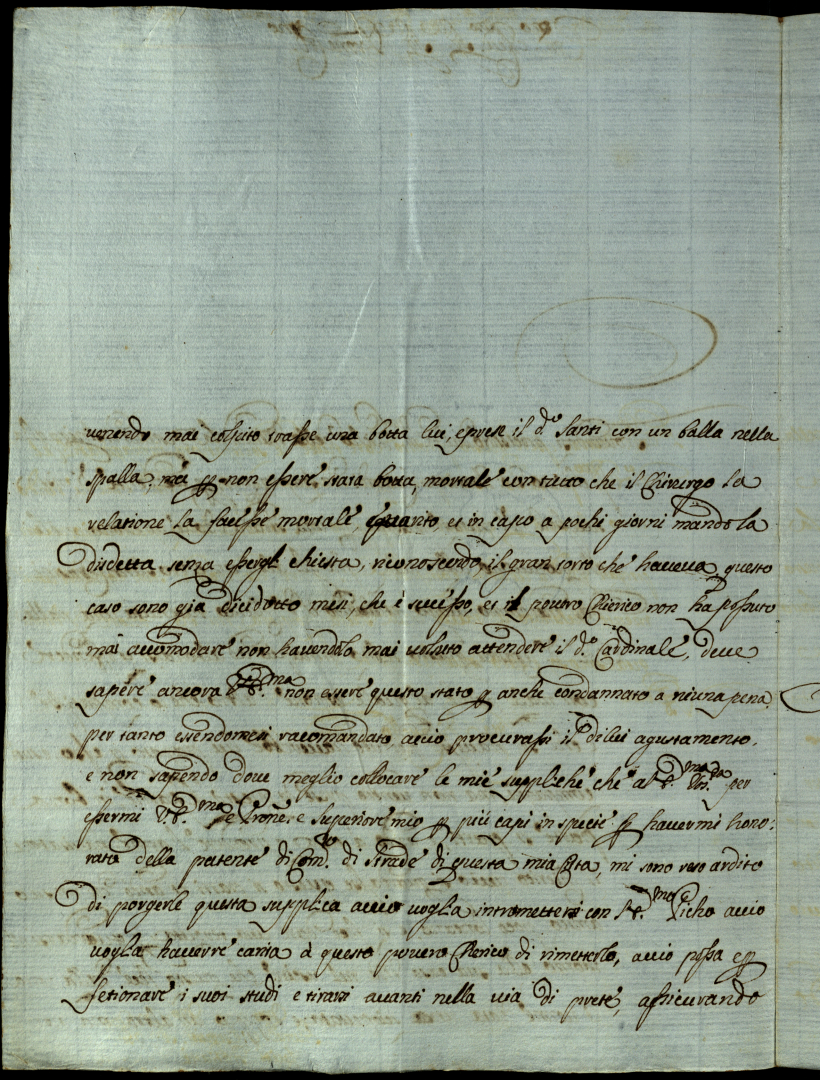 venendo mai costito trasse una botta lui, e prese il d.º Santi con un balla nella
spalla, mà p non essere stata botta, mortale con tutto che il Chirurgo la
relatione la facesse mortale, et in capo a pochi giorni mandò la
disdetta senza essergl chiesta, riconoscendo, il gran torto che haveva questo
caso sono già dicidotto mesi, che è sucesso, et il povero Chierico non ha possuto
mai accomodare non havendolo mai voluto attendere il d.º Cardinale, deve
sapere ancora V.E.ma non essere questo stato p anche condannato a niuna pena.
per tanto essendomesi racomandato accio procurassi il di lui agustamento,
e non sapendo dove meglio collocare le mie suppliche che al per
essermi V.E.ma e Prone, e Superiore mio p più capi in specie p havermi hono:
rato della patente di Com.rio di Strade di questa mia Città, mi sono reso ardito
di porgerle questa supplica accio voglia intromettersi con accio
voglia havere carita à questo povero Chierico di rimetterlo, accio possa ep
fetionare i suoi studi e tirarsi avanti nella via di prete, assicurando